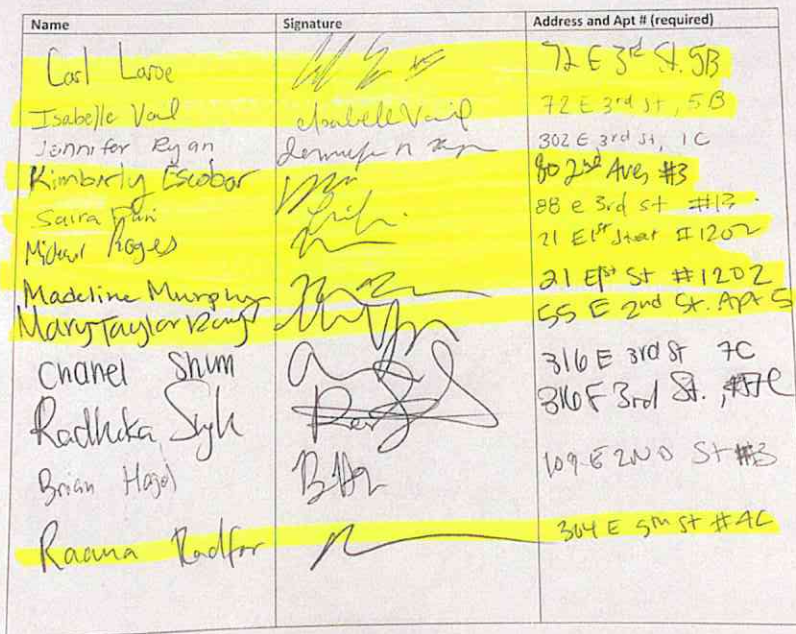 Name Signature Address and Apt # (required)
Carl Laroe 72 E 3rd St. 5B
Isabelle Vail Isabelle Vail 72 E 3rd St, 5B
Jennifer Ryan Jennifer n Ryan 302 E 3rd St, 1C
Kimberly Escobar 80 2nd Ave, #3
Saira 88 e 3rd st #13
Michael 21 E 1st Street #1202
Madeline Murphy 21 E 1st St #1202
Mary Taylor 55 E 2nd St. Apt 5
Chanel Shum 316 E 3rd St 7C
Radhika 316 E 3rd St.,
Brian 109 E 2ND St #3
Raana Radfar 304 E 5th St #4C